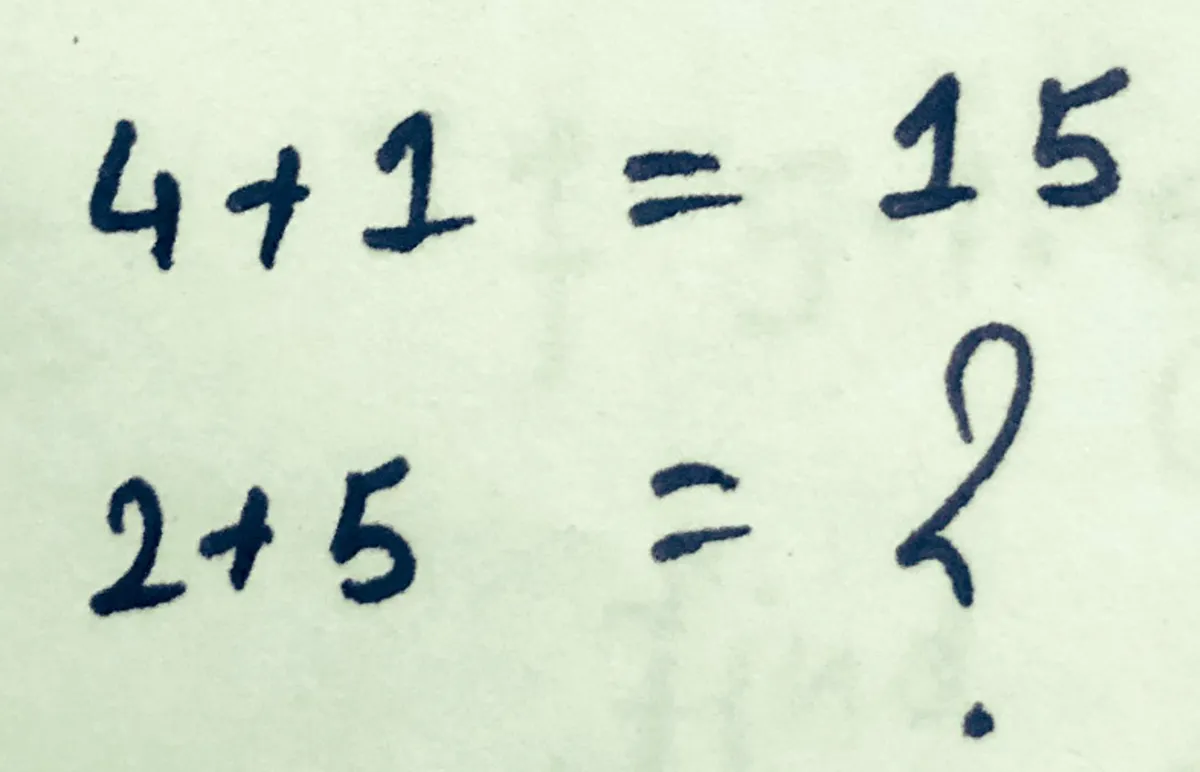 4+1 = 15
2+5 = ?